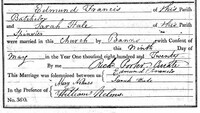 Edmund Francis of this Parish
Batchelor
and Sarah Hale of this Parish
Spinster
were married in this Church by Banns with Consent
this Ninth Day of
May in the Year One thousand eight hundred and Twenty
By me
This Marriage was solemnized between us Edmund Francis
Sarah Hale
In the Presence of
William
No. 360.